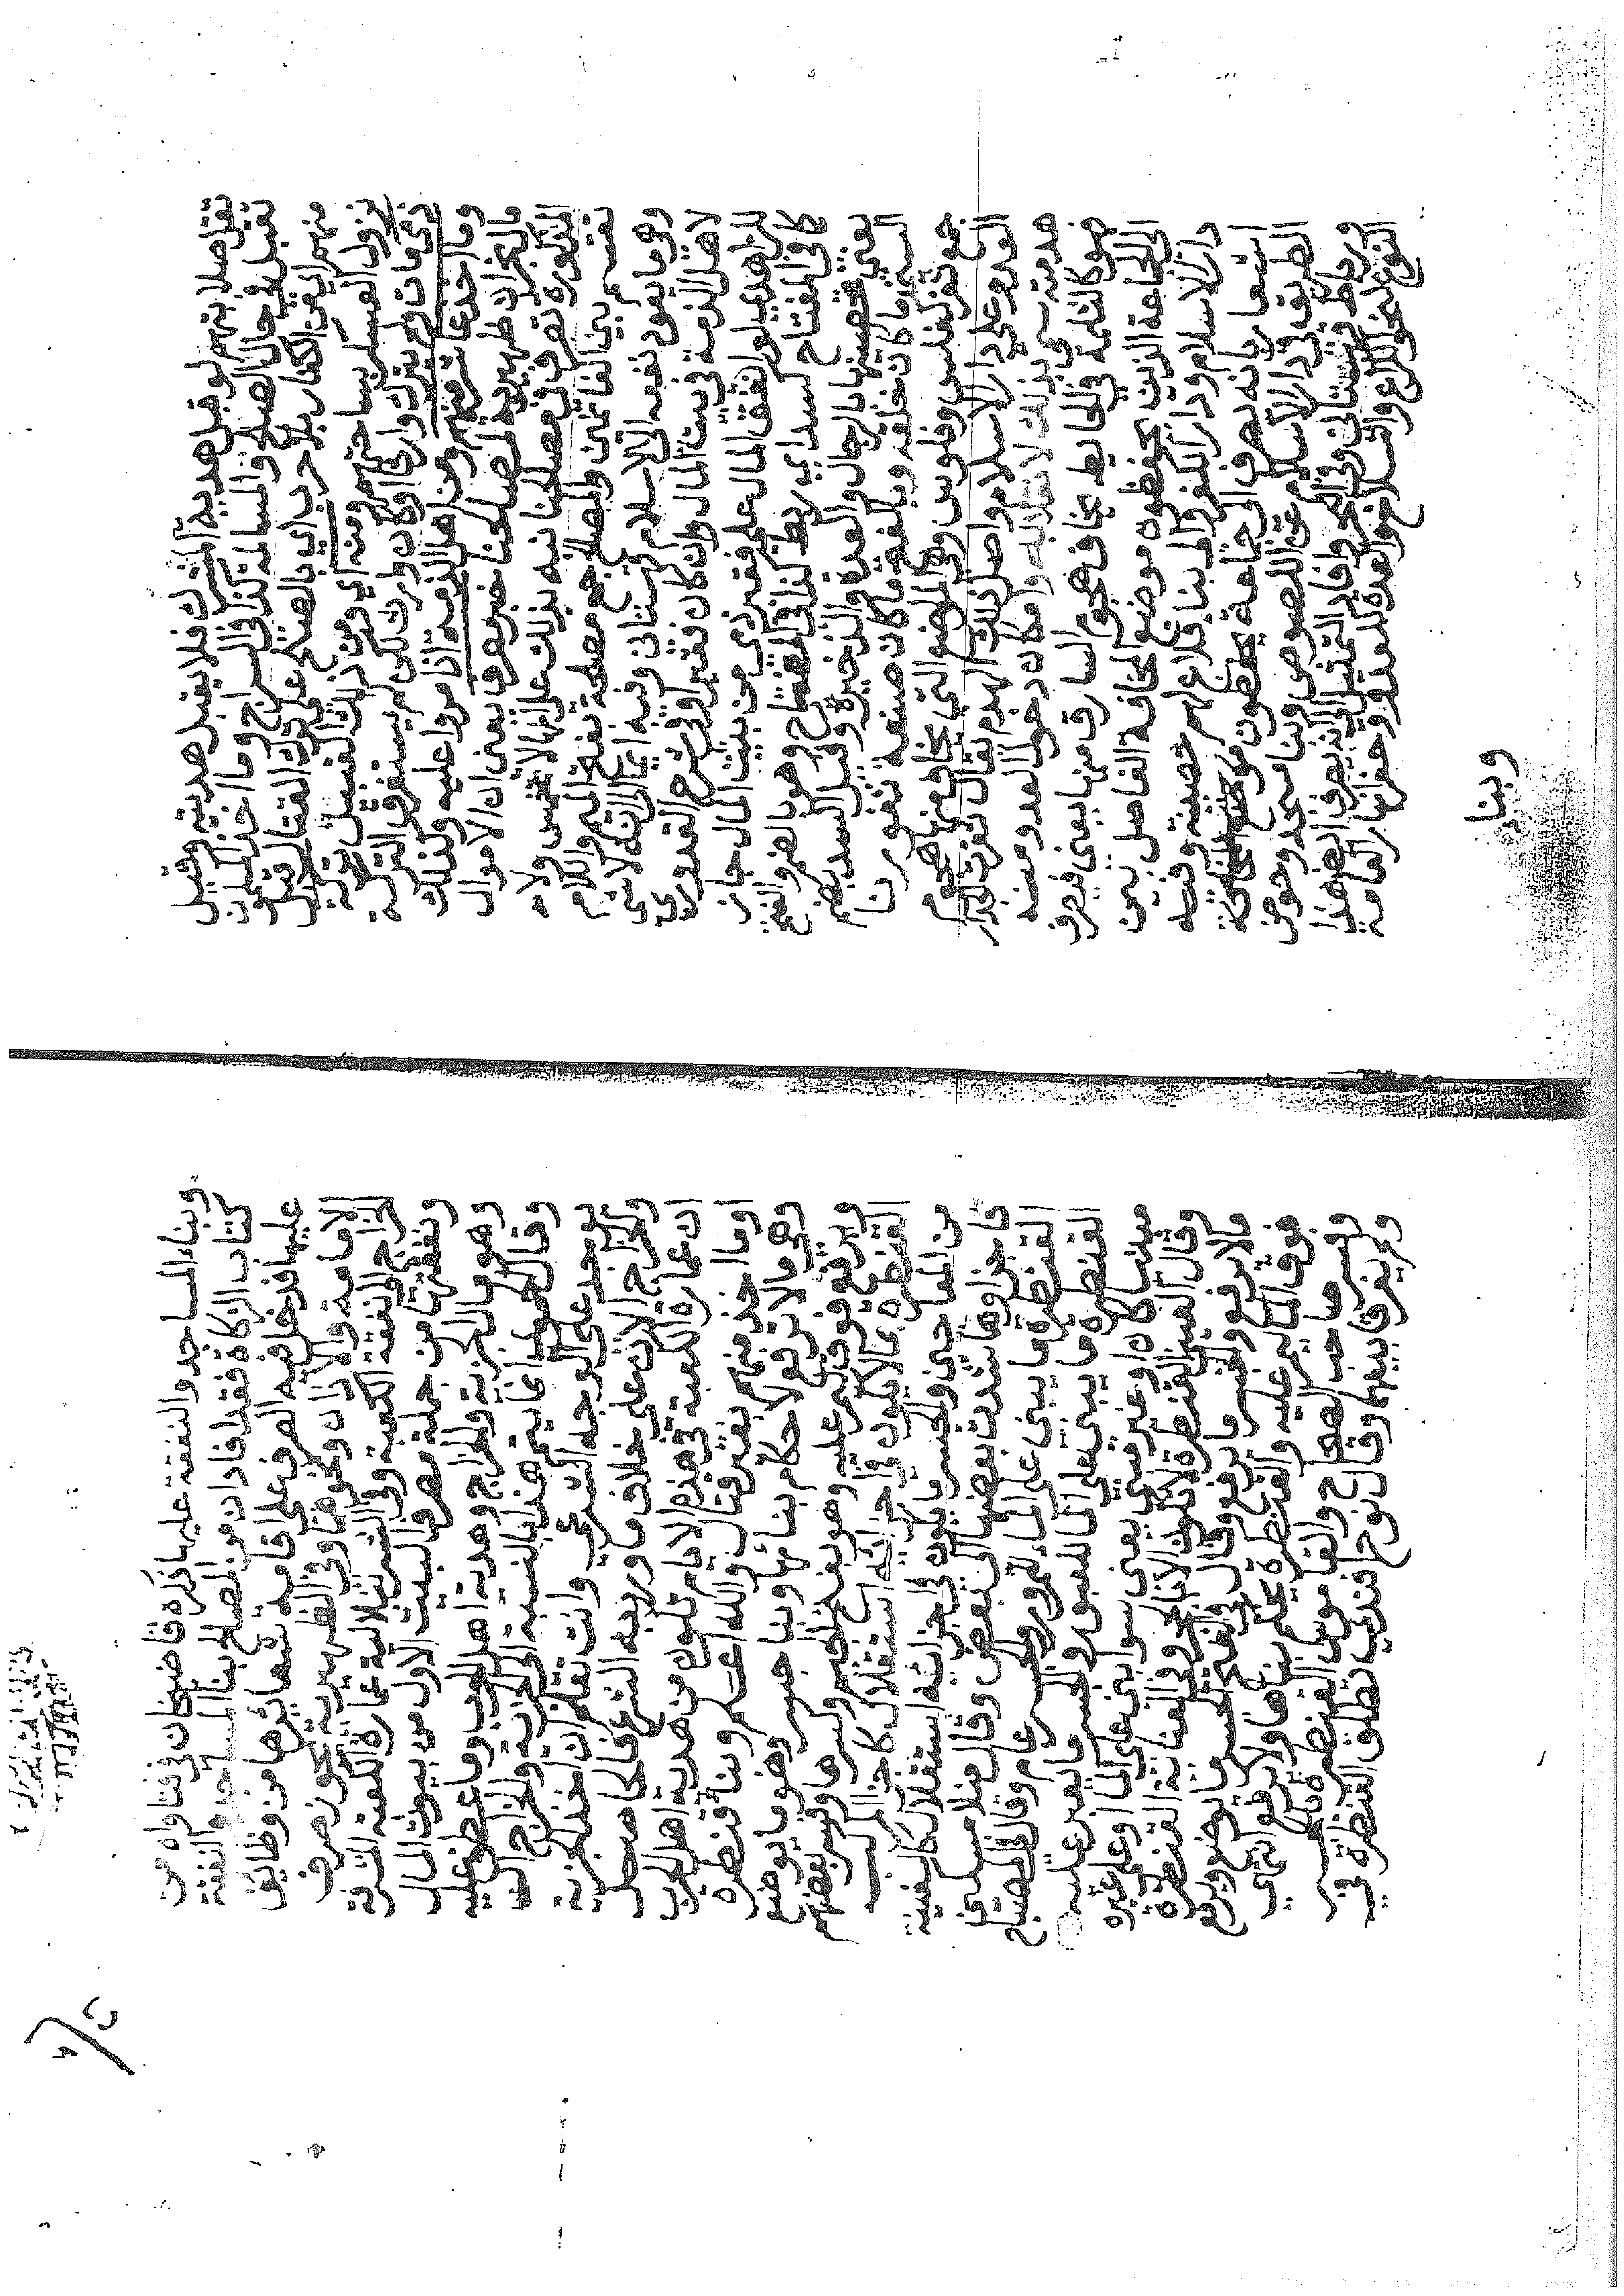 تقل صلابتهم لو قبل هدية المشرك فلا يقبل هديته وقيل
تقبل في حال الصلح والمسالمة كذا في السراج وما اخذ المسلمون
منهم اي من الكفار بلا حرب اي بالصلح على ترك القتال قبل
نزول العسكر بساحتهم ومنه اي ومن ذلك القبيل تركة
ذمي مات ولم يترك وارثا او كان وارث لكن لم يستغرق التركة
وما اخذ عاشر منهم ومن اهل الذمة اذا مروا عليه وكذلك
مال نجران ظهيرية لمصالحنا خبر يصرف يعني ان الاموال
المذكورة تصرف في مصلحنا نبه بذلك على انها لا تخمس ولا
تقسم بين الغانمين والمصالح جمع مصلحة بفتح الميم واللام
وهي ما يعود نفعه الى الاسلام قهستاني وفيه ايماء الى انه لا شي
لاهل الذمة في بيت المال وان كان فقيرا وفي شرح القدوري
للزاهدي لو انفق المال على فقير ذمي من بيت المال جاز
كما في المفتاح كسد اي ربط كذا في المفتاح وهو بالضم والفتح
يعني تحصينها بالرجال والعدة والذخيرة وقيل السد بضم
السين ما كان خلقه وبالفتح ما كان صنعة ثغورنا
جمع ثغر كفلس وفلوس وهي المواضع التي يخاف منها هجوم
العدو على دار الاسلام واصل ذلك الهدم يقال ثغرت الجدار
هدمته سمي بذلك لانفلاله وامكان دخول العدو منه
فهو كالثلمة في الحايط يخاف هجوم السارق منها يعني فيصرف
الى الجماعة الذين يحفظون موضع المخافة الفاصل بين
دار الاسلام ودار الكفر بنا قلاع لهم حصينة وفيه
اشعار بانه يصرف الى جماعة يحفظون
الطريق في دار الاسلام عن اللصوص وبنا مسجد وحوض
ورباط قهستاني وفي البحر وافاد التمثيل انه يصرف ايضا هذا
النوع لنحو الكراع والسلاح والعدة للعدو وحفر انهار العامة
وبناء
وبناء المساجد والنفقة عليها ذكره قاضيخان في فتاواه من
كتاب الزكاة فقد افاد ان من المصالح بنا المساجد والنفقة
عليها فدخل فيه الصرف على اقامة شعائرها من وظايف
الامامة والاذان ونحوهما وفي الظهيرية يجوز صرف
الخراج الى نفقة الكعبة وفي الشرنبلالية عمارة الكعبة الشرفة
ونفقتها من جملة مصرف البيت الاول من بيوت المال
وهو مال الجزية والخراج وهدية اهل الحرب وما عطف عليه
وقال انما يتم هذا بالنسبة الى الجزية والخراج اذا
يوجد على الوجه الشرعي وانت تعلم ان اخذ الجزية
والخراج الان على خلاف ما ورد به الشرع فالحاصل
ان عمارة الكعبة في هذه الايام تكون من هدية اهل الحرب
اوما اخذ منهم بغير قتال والله اعلم وبنا قنطرة
وهي ما لا يرفع لاحكام بنائها وبنا جسر وهو ما يوضع
ويرفع فوق الماء ليمر عليه وهو بفتح الجيم وكسرها وفسر بعضهم
القنطرة بما لا يكون في اجزائه استقلال كاجزا المركب
من المعاجين والجسر ما يكون في اجزائه استقلال كالسفينة
فاجزاوها شدت بعضها الى بعض وقال منلا مسكين
القنطرة ما يبنى على الماء للمرور والجسر عام وقال في المصباح
القنطرة ما يبنى على الماء للعبور والجسر ما يعبر عليه
مبنيا كان او غير مبني يعني سوا بني على الما او على غيره
وقال العيني القنطرة لا تكون الا بالحجر وفي العناية القنطرة
ما لا يرفع والجسر ما يرفع وقال في الفتح الجسر ما يوضع ويرفع
فوق الماء ليمر عليه والقنطرة يحكم بناها ولا يرفع انتهى
وفسر صاحب الصحاح والقاموس القنطرة بالجسر
ولم يفرق بينهما وقال نوح افندي تطلق القنطرة في